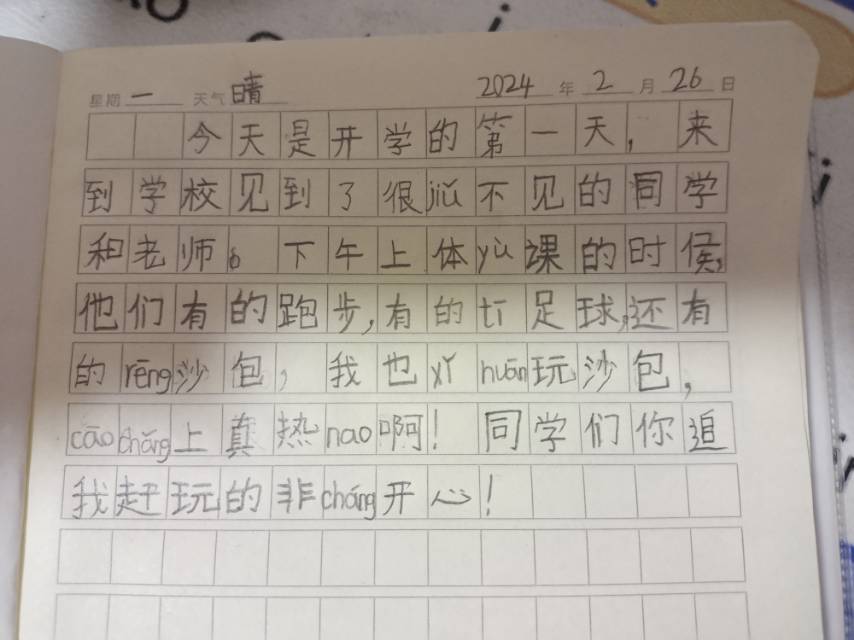 星期 一 天气 晴 2024 年 2 月 26 日
今天是开学的第一天，来
到学校见到了很jiǔ不见的同学
和老师。下午上体yù课的时候，
他们有的跑步，有的tī足球，还有
的rēng沙包，我也xǐ huān玩沙包，
cāo chǎng上真热nao啊！同学们你追
我赶玩的非cháng开心！